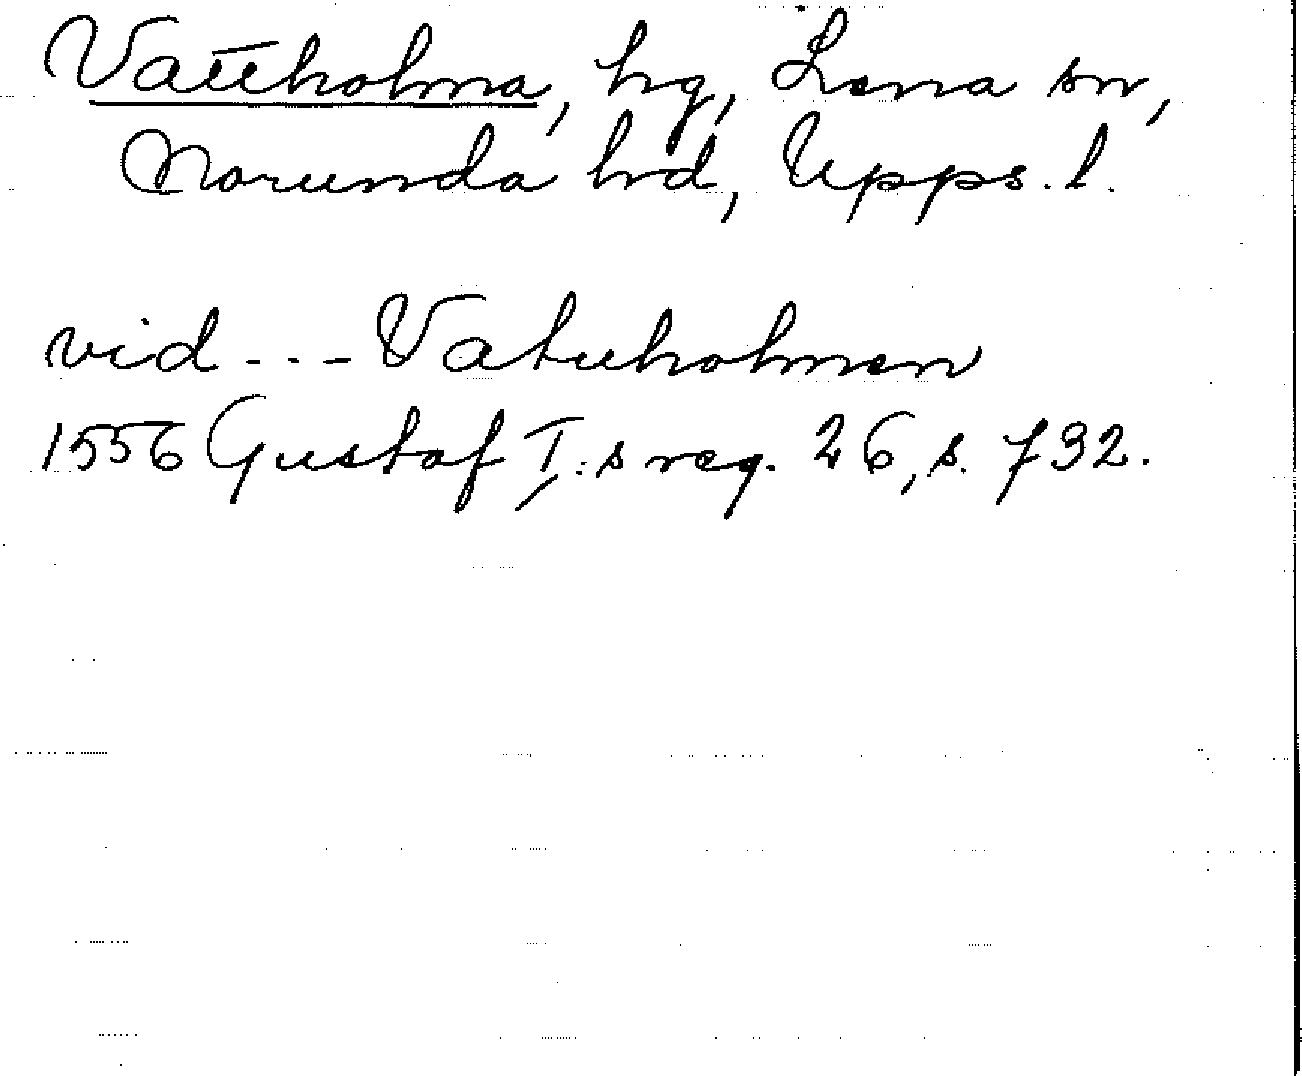 Vattholma, hg, Lena sn,
Norunda hd, Upps. l.
vid --- Vatuholmen
1556 Gustaf I:s reg. 26, s. 732.